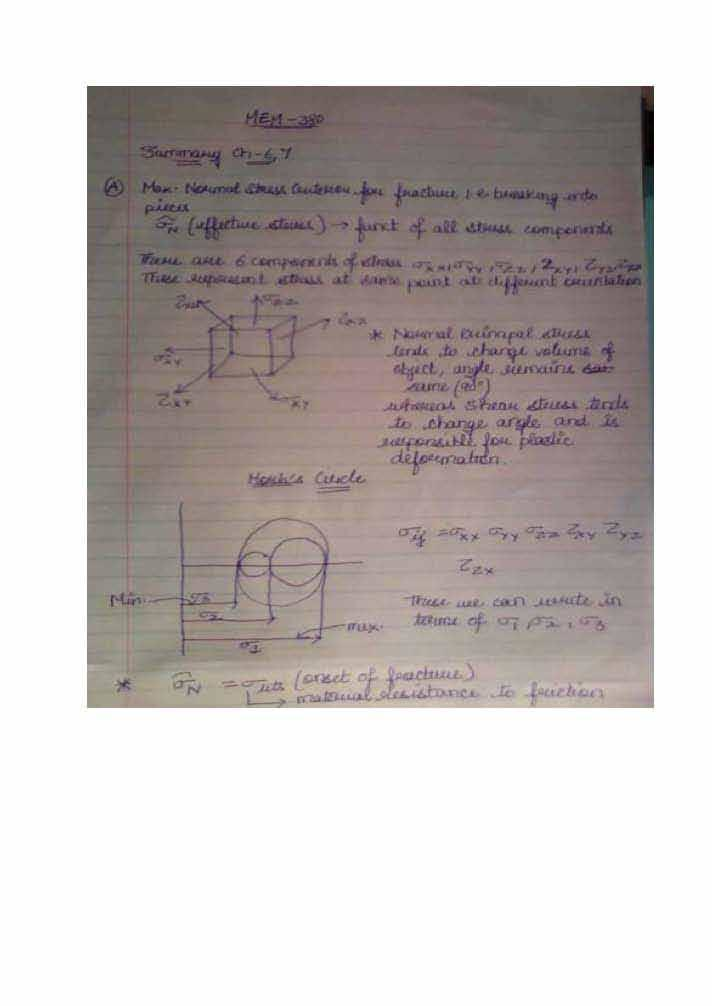 MEM-380
Summary Ch-6,7
(A) Max. Normal Stress Criterion for fracture i.e breaking into
pieces
σ̂N (effective stress) → funct of all stress components
There are 6 components of stress σxx, σyy, σzz, τxy, τyz, τzx
These represent stress at same point at different orientation
σzz
τxz
σxy
τxy
σxy
* Normal Principal stress
tends to change volume of
object, angle remains
same (90°)
whereas shear stress tends
to change angle and is
responsible for plastic
deformation.
Mohr's Circle
σij = σxx σyy σzz τxy τyz
τzx
Min. σ3
σ2
max.
σ1
These we can write in
terms of σ1, σ2, σ3
* σ̂N = σuts (onset of fracture)
→ material resistance to friction